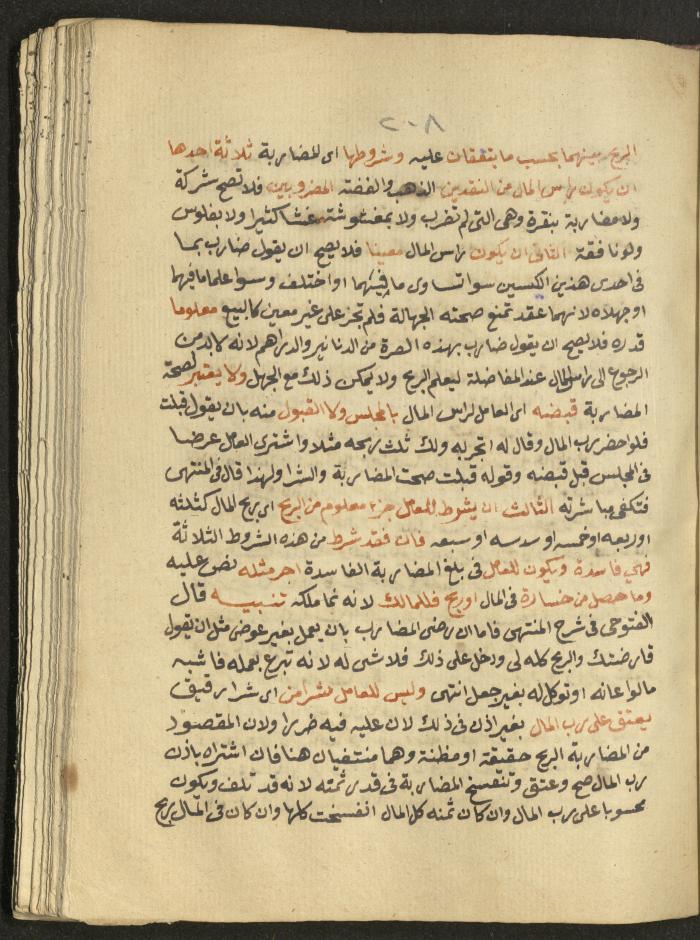 ٢٠٨
الربح بينهما بحسب ما يتفقان عليه وشروطها اى المضاربة ثلاثة احدها
ان يكون راس المال من النقدين الذهب والفضة المضروبين فلا تصح شركة
ولا مضاربة بنقرة وهى التى لم تضرب ولا بمغشوشة غشا كثيرا ولا بفلوس
ولو نافقة الثانى ان يكون راس المال معينا فلا يصح ان يقول ضارب بما
فى احدى هذين الكيسين سوا تساوى ما فيهما او اختلف وسوا علما ما فيهما
او جهلاه لانهما عقد تمنع صحته الجهالة فلم تجز على غير معين كالبيع معلوما
قدره فلا يصح ان يقول ضارب بهذه الصرة من الدنانير والدراهم لانه لا بد من
الرجوع الى راس المال عند المفاضلة ليعلم الربح ولا يمكن ذلك مع الجهل ولا يعتبر لصحة
المضاربة قبضه اى العامل لراس المال بالمجلس ولا القبول منه بان يقول قبلت
فلو احضر رب المال وقال له اتجر به ولك ثلث ربحه مثلا واشترى العامل عرضا
فى المجلس قبل قبضه وقوله قبلت صحت المضاربة والشرا ولهذا قال فى المنتهى
فتكفى مباشرته الثالث ان يشرط للعامل جزء معلوم من الربح اى ربح المال كثلثه
او ربعه او خمسه او سدسه او سبعه فان فقد شرط من هذه الشروط الثلاثة
فهى فاسدة ويكون للعامل فى المضاربة الفاسدة اجر مثله نص عليه
وما حصل من خسارة فى المال او ربح فللمالك لانه نما ملكه تنبيه قال
الفتوحى فى شرح المنتهى فاما ان رضى المضارب بان يعمل بغير عوض مثل ان يقول
قارضتك والربح كله لى ودخل على ذلك فلا شى له لانه تبرع بعمله فاشبه
ما لو اعانه او توكل له بغير جعل انتهى وليس للعامل شرا من اى شرا رقيق
يعتق على رب المال بغير اذن فى ذلك لان عليه فيه ضررا ولان المقصود
من المضاربة الربح حقيقة او مظنة وهما منتفيان هنا فان اشتراه باذن
رب المال صح وعتق وتنفسخ المضاربة فى قدر ثمنه لانه قد تلف ويكون
محسوبا على رب المال وان كان ثمنه كل المال انفسخت كلها وان كان فى المال ربح